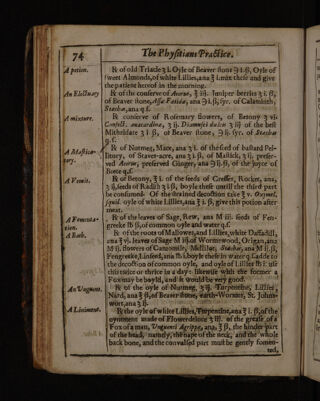 74
The Physitians Practice.
A potion.
℞ of old Triacle ʒ i. Oyle of Beaver stone ℈ i. ß, Oyle of
sweet Almonds, of white Lillies, ana ʒ i. mix these and give
the patient hereof in the morning.
An Electuary
℞ of the conserve of Acorus, ℥ iij. Juniper berries ʒ i. ß,
of Beaver stone, Assa Fœtida, ana ℈ i. ß, syr. of Calaminth,
Stœchas, ana q. s.
A mixture.
℞ conserve of Rosemary flowers, of Betony ℥ vi
Confect. anacardina, ʒ ij. Diamusci dulcis ʒ iij of the best
Mithridate ʒ i ß, of Beaver stone, ℈ ij. syr. of Stœchas
q. s.
A Masticatory.
℞ of Nutmeg, Mace, ana ʒ i. of the seed of bastard Pellitory, of Staves-acre, ana ʒ i. ß, of Mastick, ʒ ij. preserved Acorus, preserved Ginger, ana ℈ ij. ß, of the Joyce of
Beete q. s.
A Vomit.
℞ of Betony, ℥ i. of the seeds of Cresses, Rocket, ana,
ʒ ß, seeds of Radish ʒ i ß, boyle these untill the third part
be consumed. Of the strained decoction take ℥ v. Oxymel.
squil. oyle of white Lillies, ana ℥ i. ß, give this potion after
meat.
A Fomentation.
℞ of the leaves of Sage, Rew, ana M iij. seeds of Fengreeke lb ß, of common oyle and water q. s.
A Bath.
℞ of the roots of Mallowes, and Lillies, white Daffadill,
ana ℥ vi. leaves of Sage M iij. of Wormewood, Origan, ana
M ij. flowers of Camomile, Melilot, Stœchas, ana M ij. ß,
Fengreeke, Linseed, ana lb i. boyle these in water q. s. adde to
the decoction of common oyle, and oyle of Lillies lb i. use
this twice or thrice in a day: likewise with the former a
Fox may be boyld, and it would be very good.
An Unguent.
℞ of the oyle of Nutmeg, ʒ ij. Turpentine, Lillies,
Nard, ana ℥ ß, of Beaver stone, earth-Wormes, St. Johnswort, ana ℥ ij.
A Liniment.
℞ the oyle of white Lillies, Turpentine, ana ℥ i. ß, of the
oyntment made of Flowerdeluce ℥ iij. of the grease of a
Fox of a man, Unguenti Agrippæ, ana, ℥ ß, the hinder part
of the head, namely, the nape of the neck, and the whole
back bone, and the convulsed part must be gently fomented,